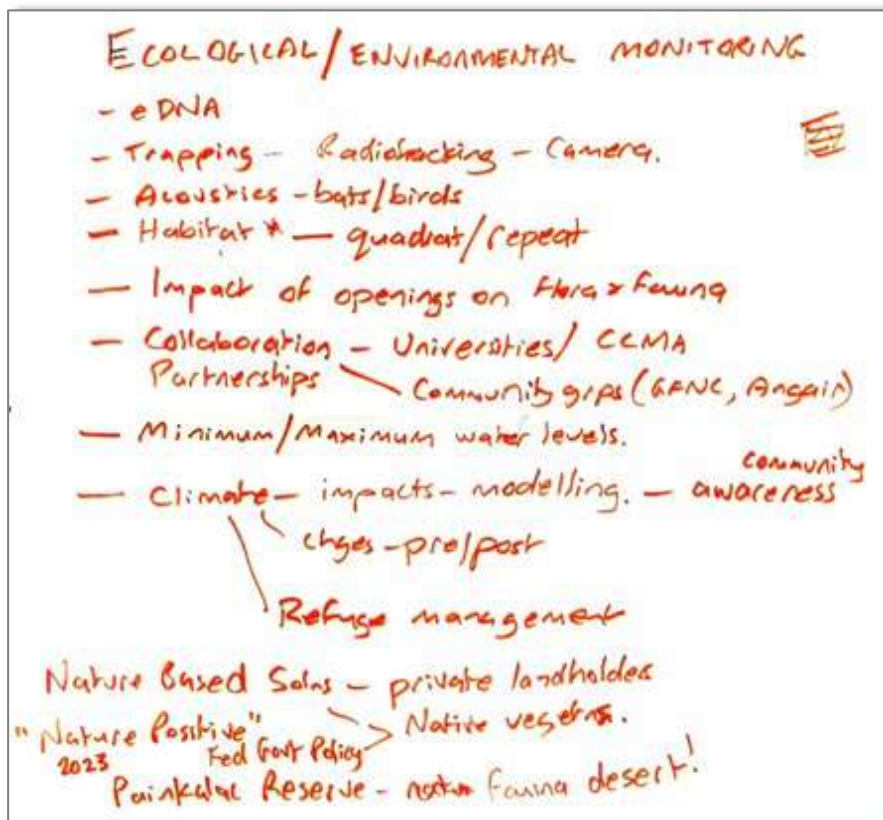 ECOLOGICAL/ENVIRONMENTAL MONITORING
- eDNA
- Trapping - Radiotracking - Camera.
- Acoustics - bats/birds
- Habitat * - quadrat/repeat
- Impact of openings on Flora & Fauna
- Collaboration - Universities/ CCMA
Partnerships Community grps (GFNC, Angair)
- Minimum/Maximum water levels.
community
- Climate - impacts - modelling. - awareness
chges - pre/post
Refuge management
Nature Based Solns - private landholders
"Nature Positive" > Native vegetn.
2023 Fed Govt Policy
Painkalac Reserve - Fauna desert!